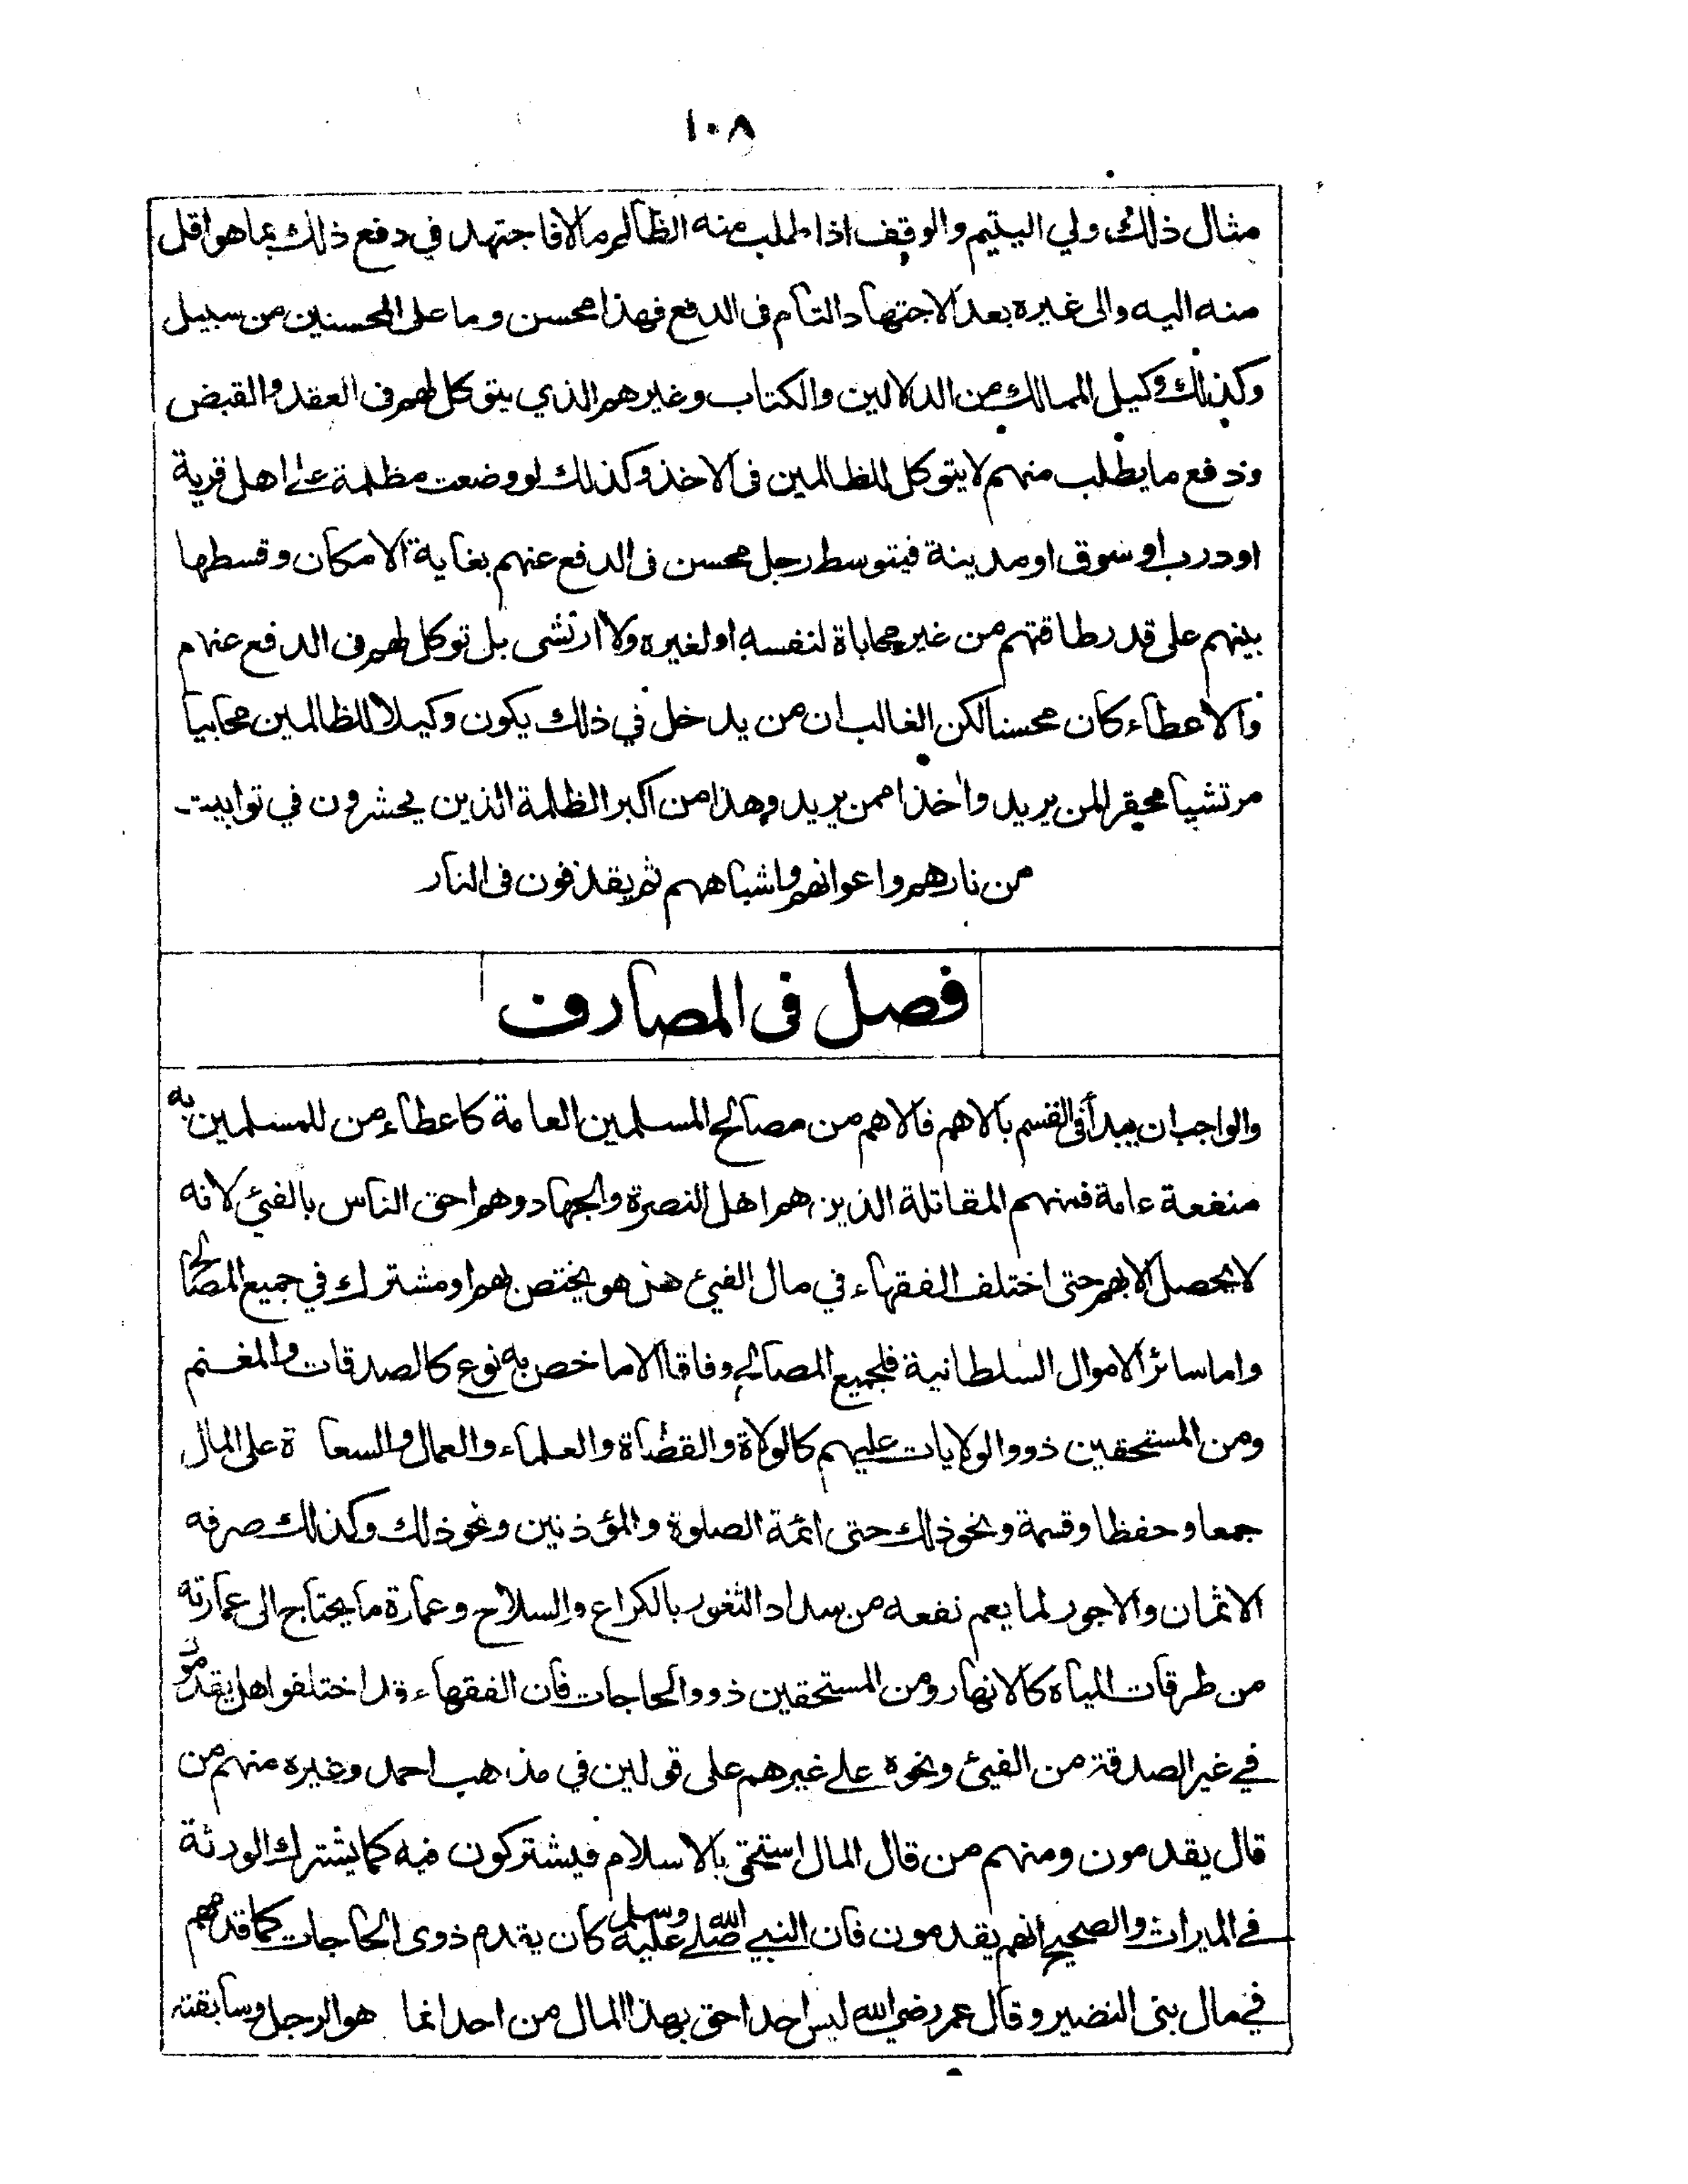 ١٠٨
مثال ذلك ولي اليتيم والوقف اذا طلب منه الظالم مالا فاجتهد في دفع ذلك بما هو اقل
منه اليه والى غيره بعد الاجتهاد التام فى الدفع فهذا محسن وما على المحسنين من سبيل
وكذلك وكيل المالك من الدلالين والكتاب وغيرهم الذي يتوكل لهم فى العقد والقبض
ودفع ما يطلب منهم لا يتوكل للظالمين فى الاخذ وكذلك لو وضعت مظلمة على اهل قرية
او درب او سوق او مدينة فيتوسط رجل محسن فى الدفع عنهم بغاية الامكان وقسطها
بينهم على قدر طاقتهم من غير محاباة لنفسه او لغيره ولا ارتشى بل توكل لهم فى الدفع عنهم
والاعطاء كان محسنا لكن الغالب ان من يدخل في ذلك يكون وكيلا للظالمين محابيا
مرتشيا محقرا لمن يريد واخذا ممن يريد وهذا من اكبر الظلمة الذين يحشرون في توابيت
من نارهم واعوانهم واشباههم ثم يقذفون فى النار
فصل فى المصارف
والواجب ان يبدأ فى القسم بالاهم فالاهم من مصالح المسلمين العامة كاعطاء من للمسلمين به
منفعة عامة فمنهم المقاتلة الذين هم اهل النصرة والجهاد وهم احق الناس بالفئ لانه
لا يحصل الا بهم حتى اختلف الفقهاء في مال الفئ هذ هو يختص بهم او مشترك في جميع المصالح
واما سائر الاموال السلطانية فلجميع المصالح وفاقا الا ما خص به نوع كالصدقات والمغنم
ومن المستحقين ذوو الولايات عليهم كالولاة والقضاة والعلماء والعمال والسعا ة على المال
جمعا وحفظا وقسمة ونحو ذلك حتى ائمة الصلوة والمؤذنين ونحو ذلك وكذلك صرفه
الاثمان والاجور لما يعم نفعه من سداد الثغور بالكراع والسلاح وعمارة ما يحتاج الى عمارته
من طرقات المياه كالانهار ومن المستحقين ذوو الحاجات فان الفقهاء قد اختلفوا هل يقدمون
في غير الصدقة من الفيئ ونحوه على غيرهم على قولين في مذهب احمد وغيره منهم من
قال يقدمون ومنهم من قال المال استحق بالاسلام فيشتركون فيه كما يشترك الورثة
في الميراث والصحيح انهم يقدمون فان النبي صلى الله عليه وسلم كان يقدم ذوى الحاجات كما قدمهم
في مال بنى النضير وقال عمر رضي الله ليس احد احق بهذا المال من احد انما هو الرجل وسابقته